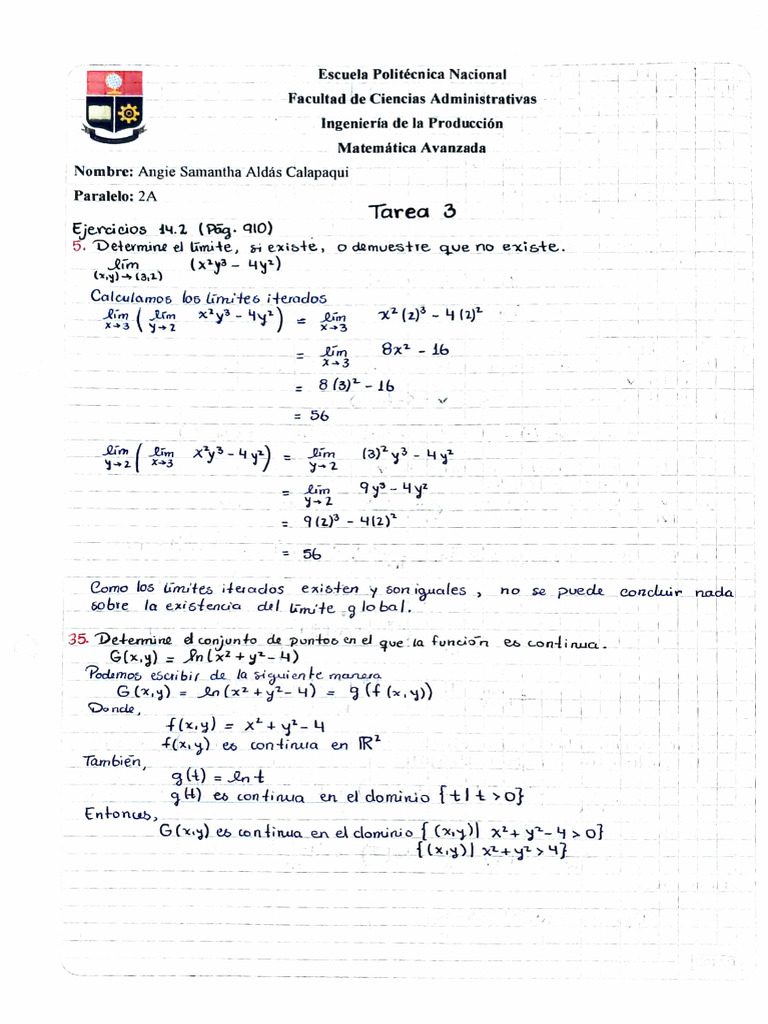 Escuela Politécnica Nacional
Facultad de Ciencias Administrativas
Ingeniería de la Producción
Matemática Avanzada
Nombre: Angie Samantha Aldás Calapaqui
Paralelo: 2A
Tarea 3
Ejercicios 14.2 (Pág. 910)
5. Determine el límite, si existe, o demuestre que no existe.
lím (x²y³ - 4y²)
(x,y)→(3,2)
Calculamos los límites iterados
lím x→3 ( lím y→2 x²y³ - 4y² ) = lím x→3 x²(2)³ - 4(2)²
= lím x→3 8x² - 16
= 8(3)² - 16
= 56
lím y→2 ( lím x→3 x²y³ - 4y² ) = lím y→2 (3)²y³ - 4y²
= lím y→2 9y³ - 4y²
= 9(2)³ - 4(2)²
= 56
Como los límites iterados existen y son iguales, no se puede concluir nada
sobre la existencia del límite global.
35. Determine el conjunto de puntos en el que la función es continua.
G(x,y) = ln(x² + y² - 4)
Podemos escribir de la siguiente manera
G(x,y) = ln(x² + y² - 4) = g(f(x,y))
Donde,
f(x,y) = x² + y² - 4
f(x,y) es continua en ℝ²
También,
g(t) = ln t
g(t) es continua en el dominio {t | t > 0}
Entonces,
G(x,y) es continua en el dominio { (x,y) | x² + y² - 4 > 0}
{(x,y) | x² + y² > 4}